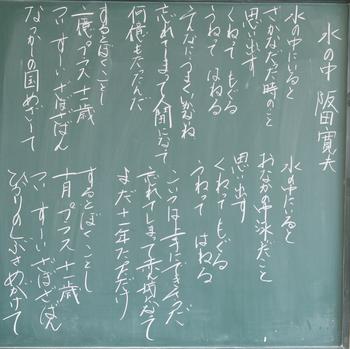 水の中 阪田寛夫
水の中にいると
さかなだった時のこと
思い出す
くねって もぐる
うねって はねる
忘れてしまって人間になって
何億年たったんだ
するとぼくことし
一億プラス十一歳
つい すーい ざぼざぼん
なつかしの国めざして
水の中にいると
おなかの中泳いだこと
思い出す
くねって もぐる
うねって はねる
忘れてしまって赤ん坊になって
まだ十一年たっただけ
するとぼくことし
十月プラス十一歳
つい すーい ざぼざぼん
ひかりのしぶきめがけて